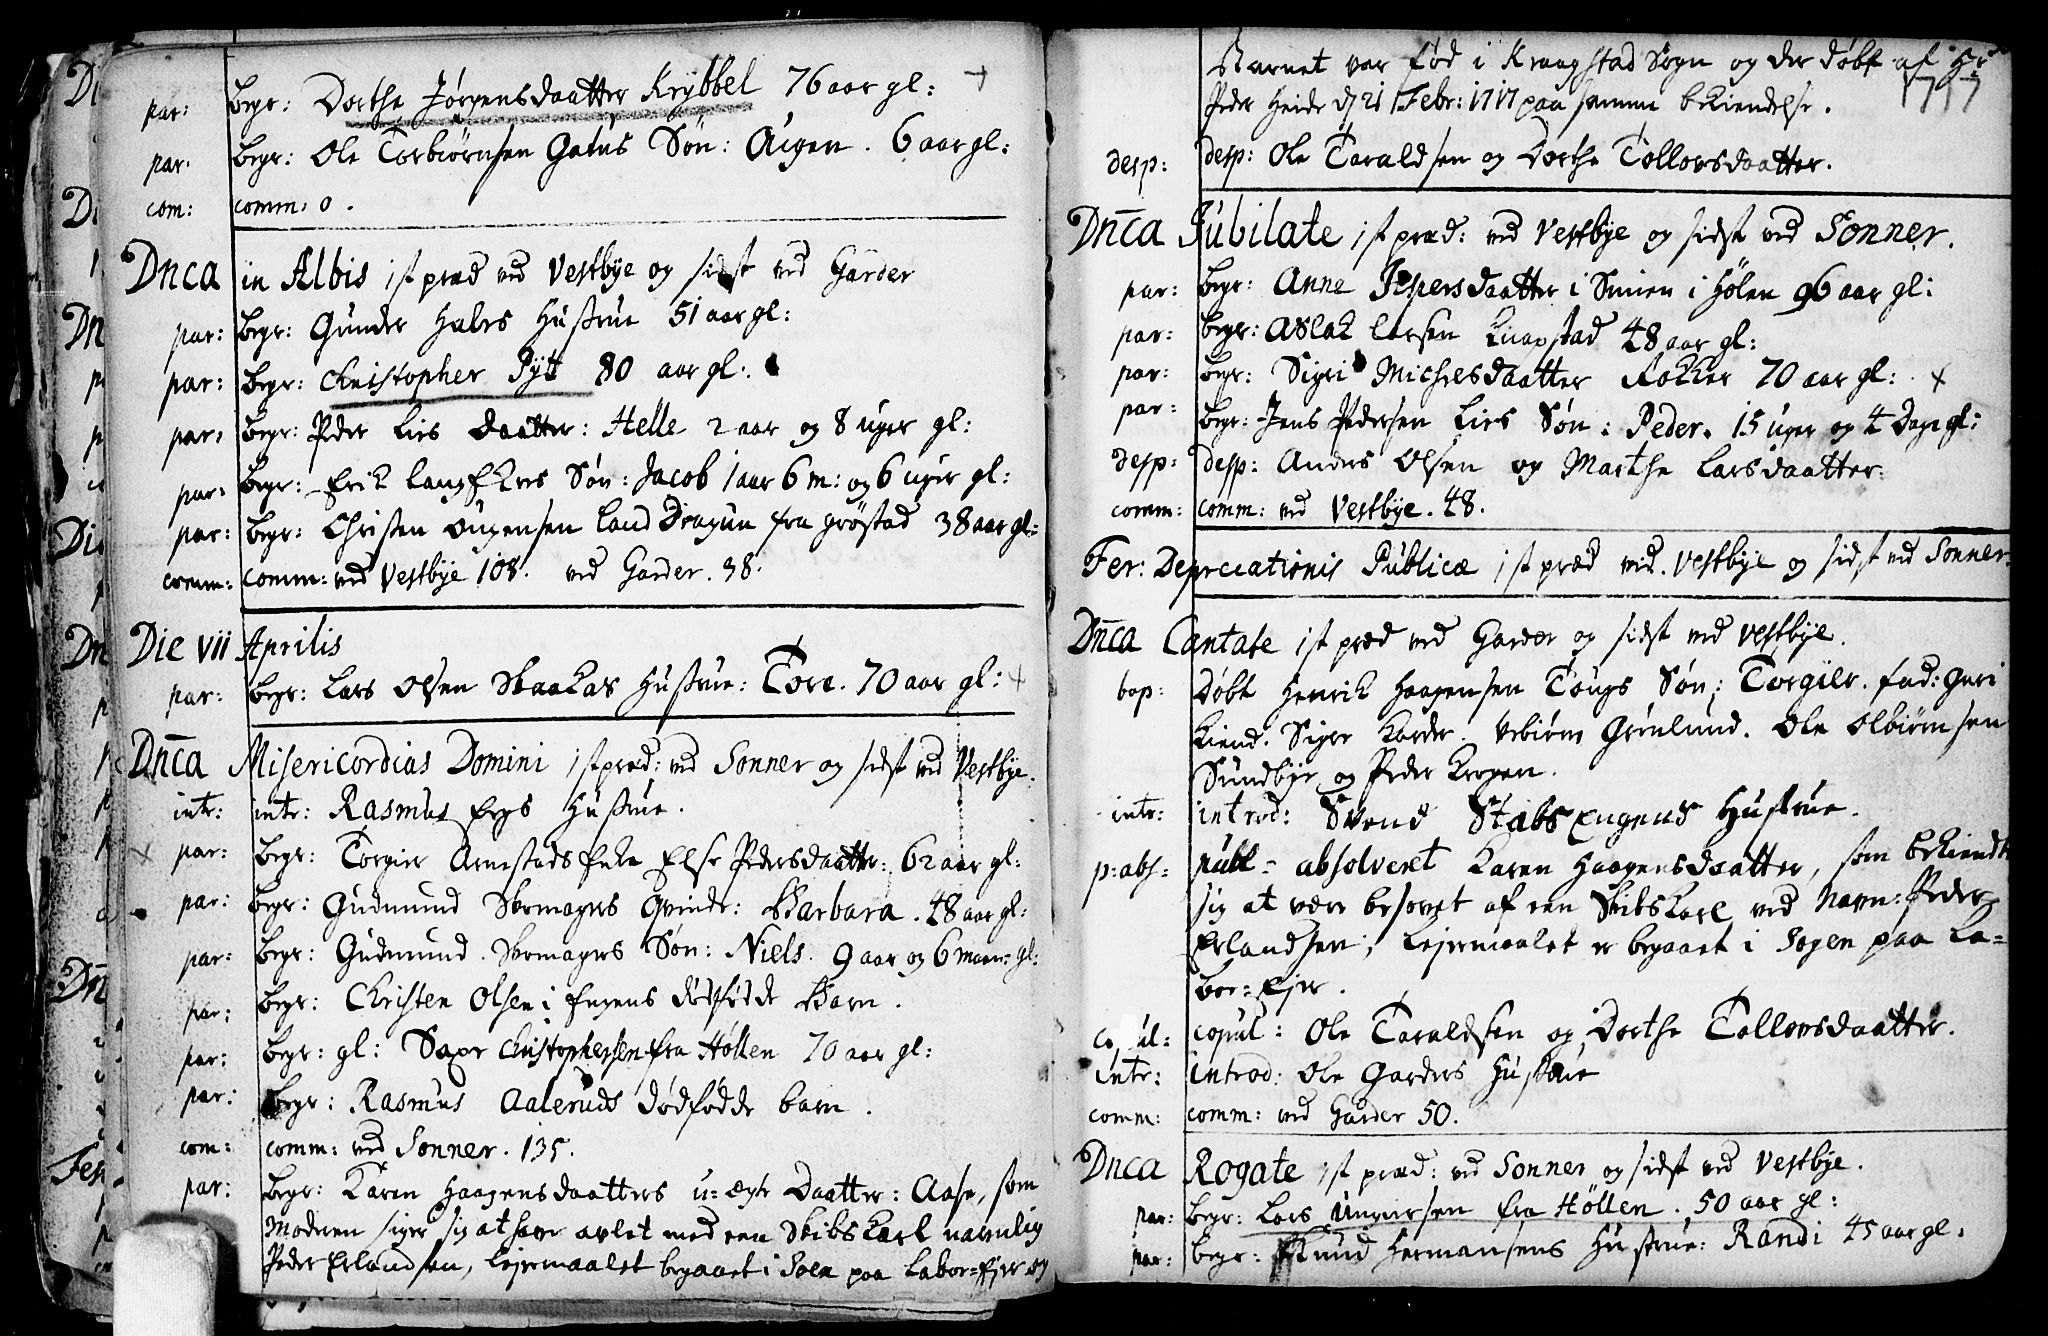 par: begr: Dorthe Jørgensdaatter Krybbel 76 aar gl:
par: begr: Ole Torbiørnsen Gatus Søn: Aigen. 6 aar gl:
com: comm: 0.
Dnca in Albis 1st præd ved Vestbye og sidst ved Garder
par: begr: Gunder Halvs Hustrue 51 aar gl:
par: begr: Christopher Pytt 80 aar gl:
par: begr: Peder Lies Daatter: Helle 2 aar og 8 uger gl:
par: begr: Erik Søn: Jacob 1 aar 6 m: og 6 uger gl:
par: begr: Christen land Dragun fra grøstad 38 aar gl:
comm: comm: ved Vestbye 108. ved Garder. 38.
Die VII Aprilis
par: begr: Lars Olsen Hustrue: Tore. 70 aar gl:
Dnca Misericordias Domini 1st præd: ved Sonner og sidst ved Vestbye.
intr: intr: Rasmus Hustrue.
par: begr: Torgier Arnestads Enke Else Pedersdaatter: 62 aar gl:
par: begr: Gudmund Skomagers Qvinde: Barbara. 48 aar gl:
par: begr: Gudmund Skomagers Søn: Niels. 9 aar og 6 maan: gl:
par: begr: Christen Olsen i Engens dødfødde Barn.
par: begr: gl: Saxe Christophersen fra Høllen 70 aar gl:
par: begr: Rasmus Aaleruds dødfødde barn.
com: comm: ved Sonner. 135.
par: begr: Karen Haagensdaatters u=ægte Daatter: Aase, som
Moderen siger sig at have avlet med een Skibs Karl navnlig
Peder Erlandsen, Lejermaalet begaaet i Soen paa Labor=Ejer og
Barnet var fød i Kraagstad Sogn og der døbt af Hr
1717
Peder Heide d 21 Febr: 1717 paa samme bekiendelse.
desp: desp: Ole Taraldsen og Dorthe Tollovsdaatter.
Dnca Jubilate 1st præd: ved Vestbye og sidst ved Sonner.
par: begr: Anne Jespersdaatter i Smien i Hølen 96 aar gl:
par: begr: Aslak Larsen Knapstad 48 aar gl:
par: begr: Sigri Michelsdaatter Rokker 70 aar gl:
par: begr: Jens Pedersen Lies Søn: Peder. 15 uger og 4 Dage gl:
desp: desp: Anders Olsen og Marthe Larsdaatter:
comm: comm: ved Vestbye. 48.
Fer: Deprecationis Publicæ 1st præd ved. Vestbye og sidst ved Sonner.
Dnca Cantate 1st præd ved Garder og sidst ved Vestbye.
bap: Døbt Henrik Haagensen Tougs Søn: Torgier. fad: Guri
Kiend. Siger Karder. Grønlund. Ole Olbiørnsen
Sundbye og Peder Krogen.
intr: introd: Svend Stabs Engens Hustrue.
p:abs: publ= absolveret Karen Haagensdaatter, som bekiendte
sig at være besovet af een Skibs karl ved navn: Peder
Erlandsen, Lejermaalet er begaaet i Sogen paa La=
bor=Ejer.
copul: copul: Ole Taraldsen og Dorthe Tollovsdaatter.
intr: introd: Ole Garders Hustrue
comm: comm: ved Garder 50.
Dnca Rogate 1st præd: ved Sonner og sidst ved Vestbye.
par: begr: Lars fra Høllen. 50 aar gl:
par: begr: Knud Hermansens Hustrue: Randi 45 aar gl.